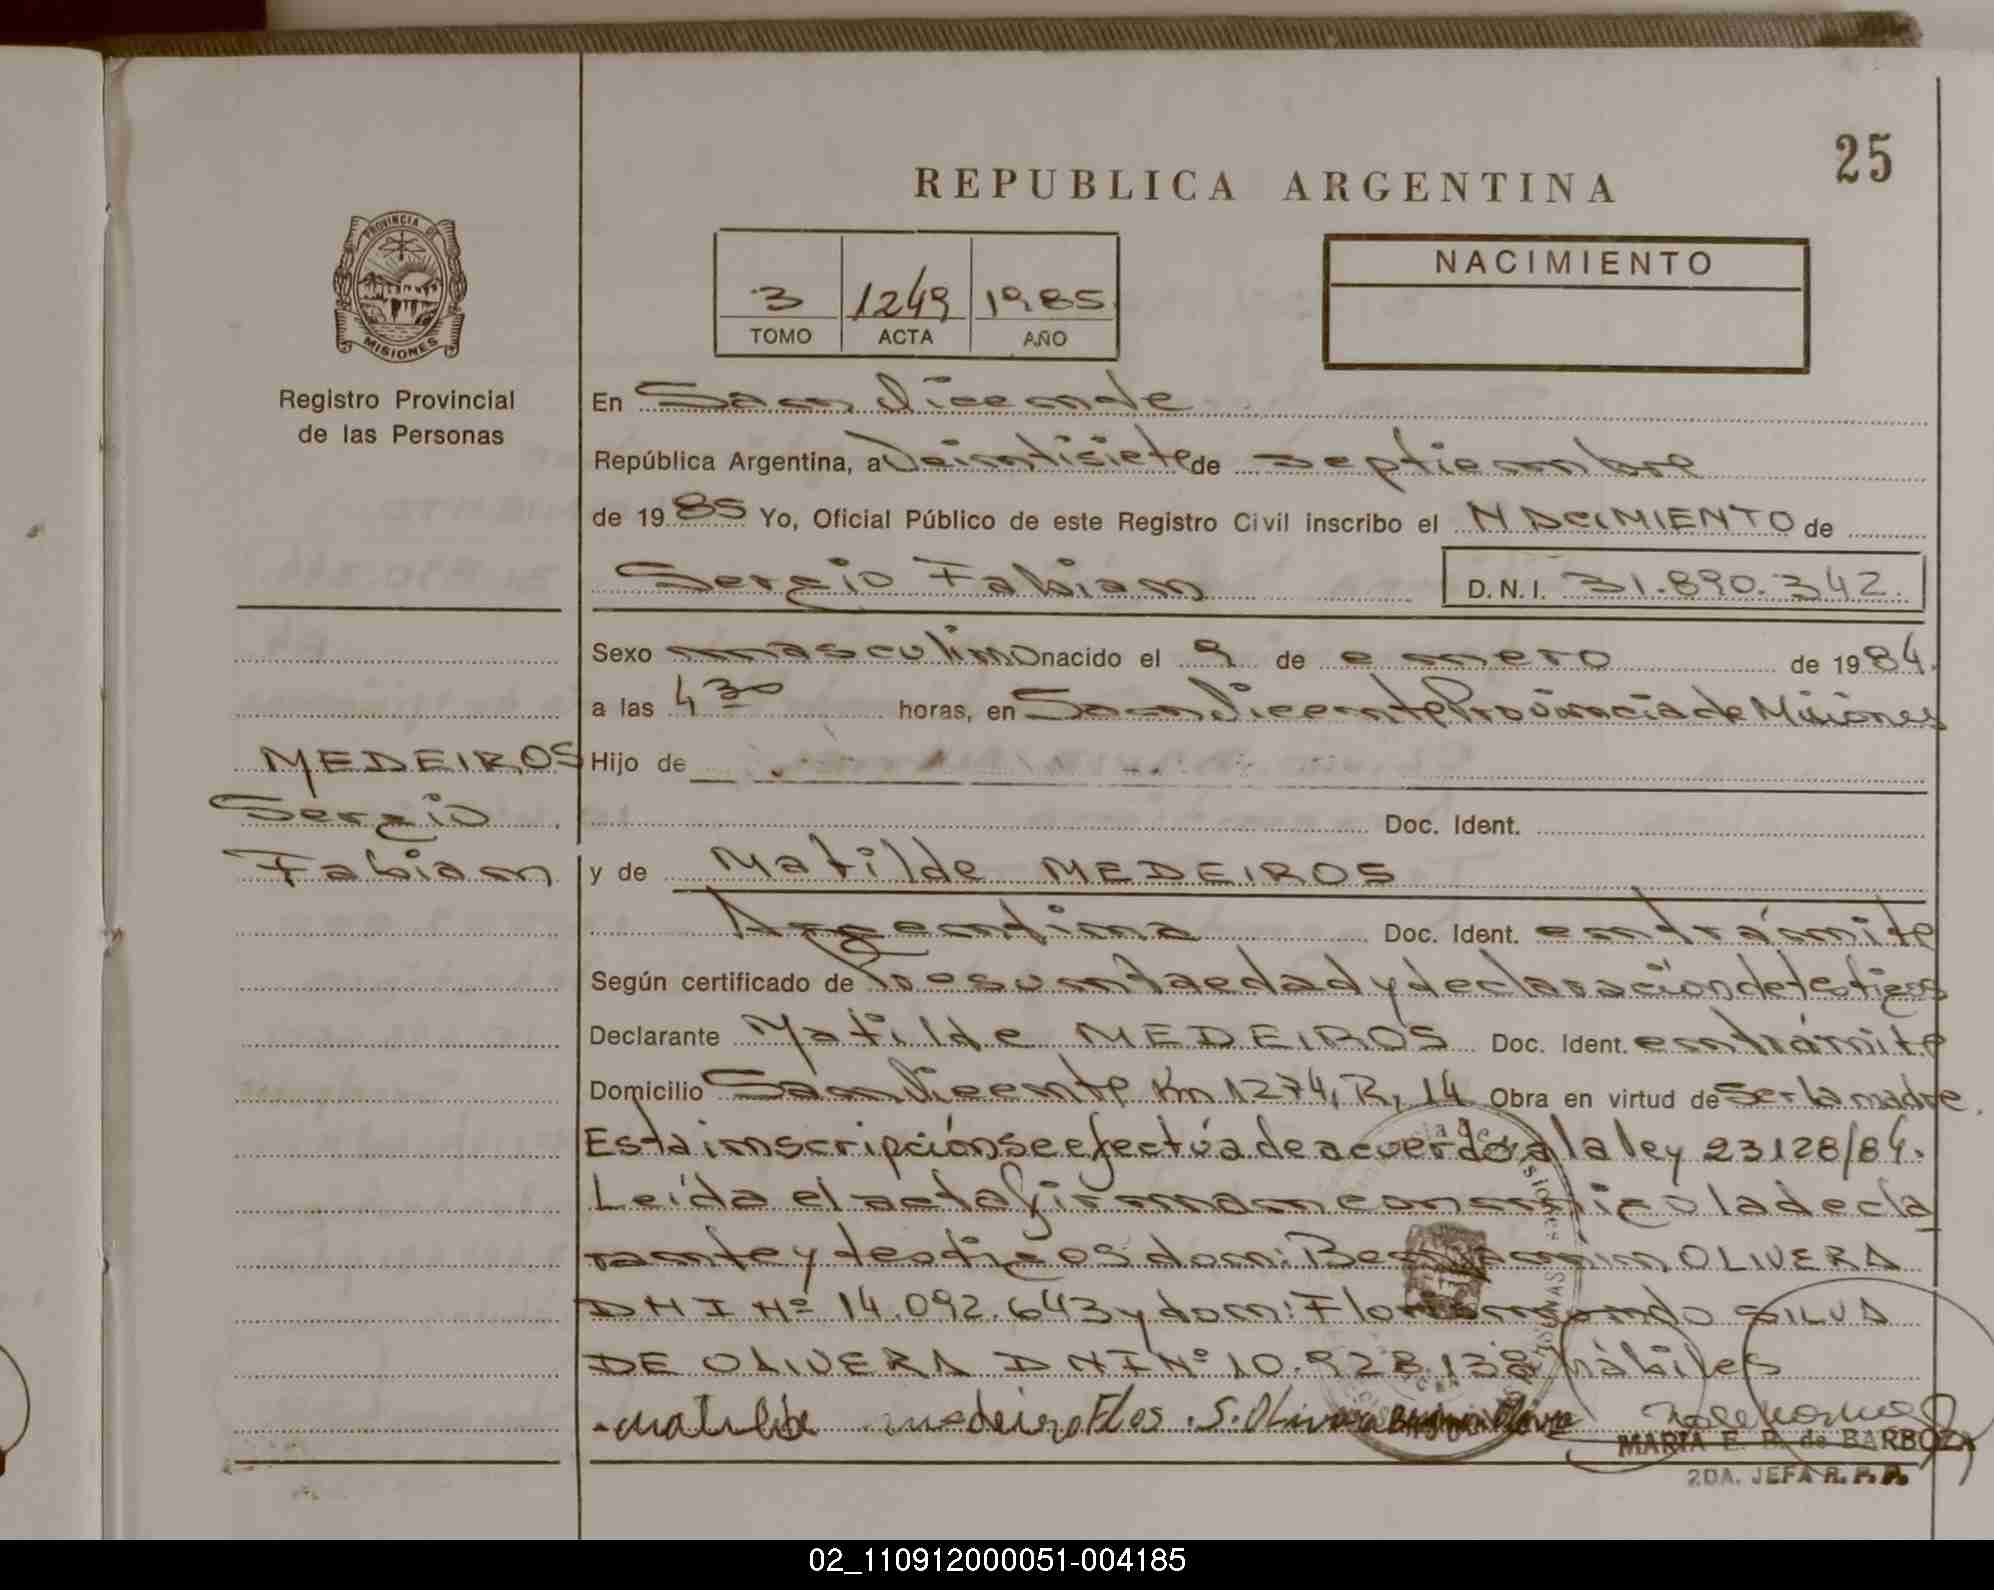 25
REPUBLICA ARGENTINA
PROVINCIA DE
MISIONES
Registro Provincial
de las Personas
3 1249 1985
TOMO ACTA AÑO
NACIMIENTO
En San Vicente
República Argentina, a Veintisiete de septiembre
de 1985 Yo, Oficial Público de este Registro Civil inscribo el NACIMIENTO de
Sergio Fabian D.N.I. 31.890.342.
Sexo masculino nacido el 9 de enero de 1984.
a las 4 30 horas, en San Vicente Provincia de Misiones
MEDEIROS
Sergio
Fabian
Hijo de
Doc. Ident.
y de Matilde MEDEIROS
Argentina Doc. Ident. en trámite
Según certificado de Presunta edad y declaración de testigos
Declarante Matilde MEDEIROS Doc. Ident. en trámite
Domicilio San Vicente Km 1274, R, 14 Obra en virtud de ser la madre.
Esta inscripción se efectúa de acuerdo a la ley 23128/84.
Leída el acta firman conmigo la decla
rante y testigos don: Benjamin OLIVERA
DNI Nº 14.092.643 y don: Florismondo SILVA
DE OLIVERA DNI Nº 10.928.138 hábiles
Matilde medeiro Flos. S. Olivera Benjamin Olivera
MARIA E. B. de BARBOZA
2DA. JEFA R. P. P.
02_110912000051-004185